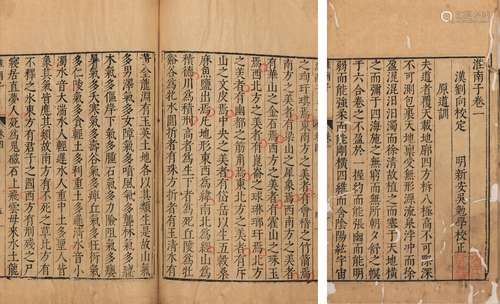 淮南子卷一
漢劉向校定 明新安吳勉學校
原道訓
夫道者覆天載地廓四方柝八極高不可際深
不可測包裹天地稟受無形源流泉浡沖而徐
盈混混汩汩濁而徐清故植之而塞于天地橫
之而彌于四海施之無窮而無所朝夕舒之幎
于六合卷之不盈於一握約而能張幽而能明
弱而能強柔而能剛橫四維而含陰陽紘宇宙
之珣玗琪焉東南方之美者有會稽之竹箭焉
南方之美者有梁山之犀象焉西南方之美者
有華山之金石焉西方之美者有霍山之珠玉
焉西北方之美者有崑崙之球琳琅玕焉北方
之美者有幽都之筋角焉東北方之美者有斥
山之文皮焉中央之美者有岱岳以生五穀桑
麻魚鹽出焉凡地形東西為緯南北為經山為
積德川為積刑高者為生下者為死丘陵為牡
谿谷為牝水圓折者有珠方折者有玉清水有
黃金龍淵有玉英土地各以其類生是故山氣
多男澤氣多女障氣多喑風氣多聾林氣多癃
木氣多傴岸下氣多腫石氣多力險阻氣多癭
暑氣多夭寒氣多壽谷氣多痹丘氣多狂衍氣
多仁陵氣多貪輕土多利重土多遲清水音小
濁水音大湍水人輕遲水人重中土多聖人皆
象其氣皆應其類故南方有不死之草北方有
不釋之冰東方有君子之國西方有形殘之尸
寢居直夢人死為鬼磁石上飛雲母來水土龍